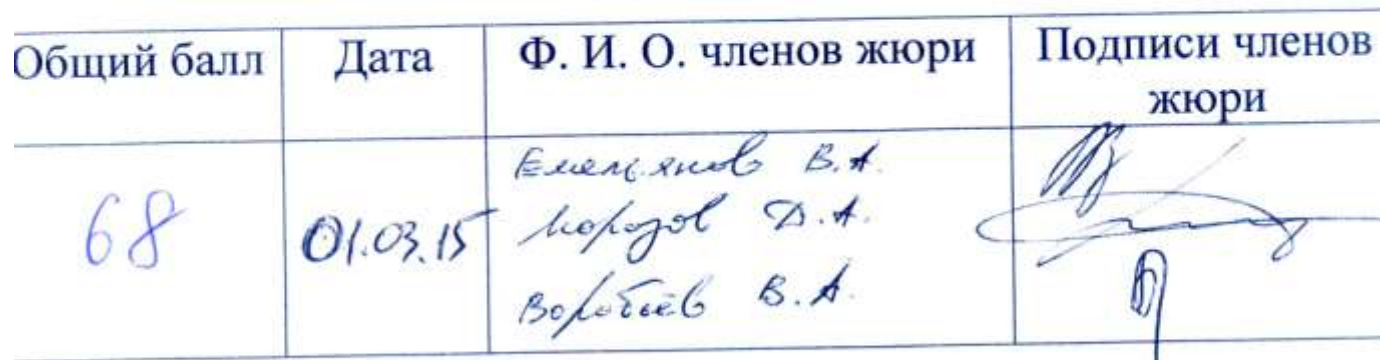 Общий балл Дата Ф. И. О. членов жюри Подписи членов жюри
68 01.03.15 Емельянов В.А.
Морозов Д.А.
Воробьёв В.А.